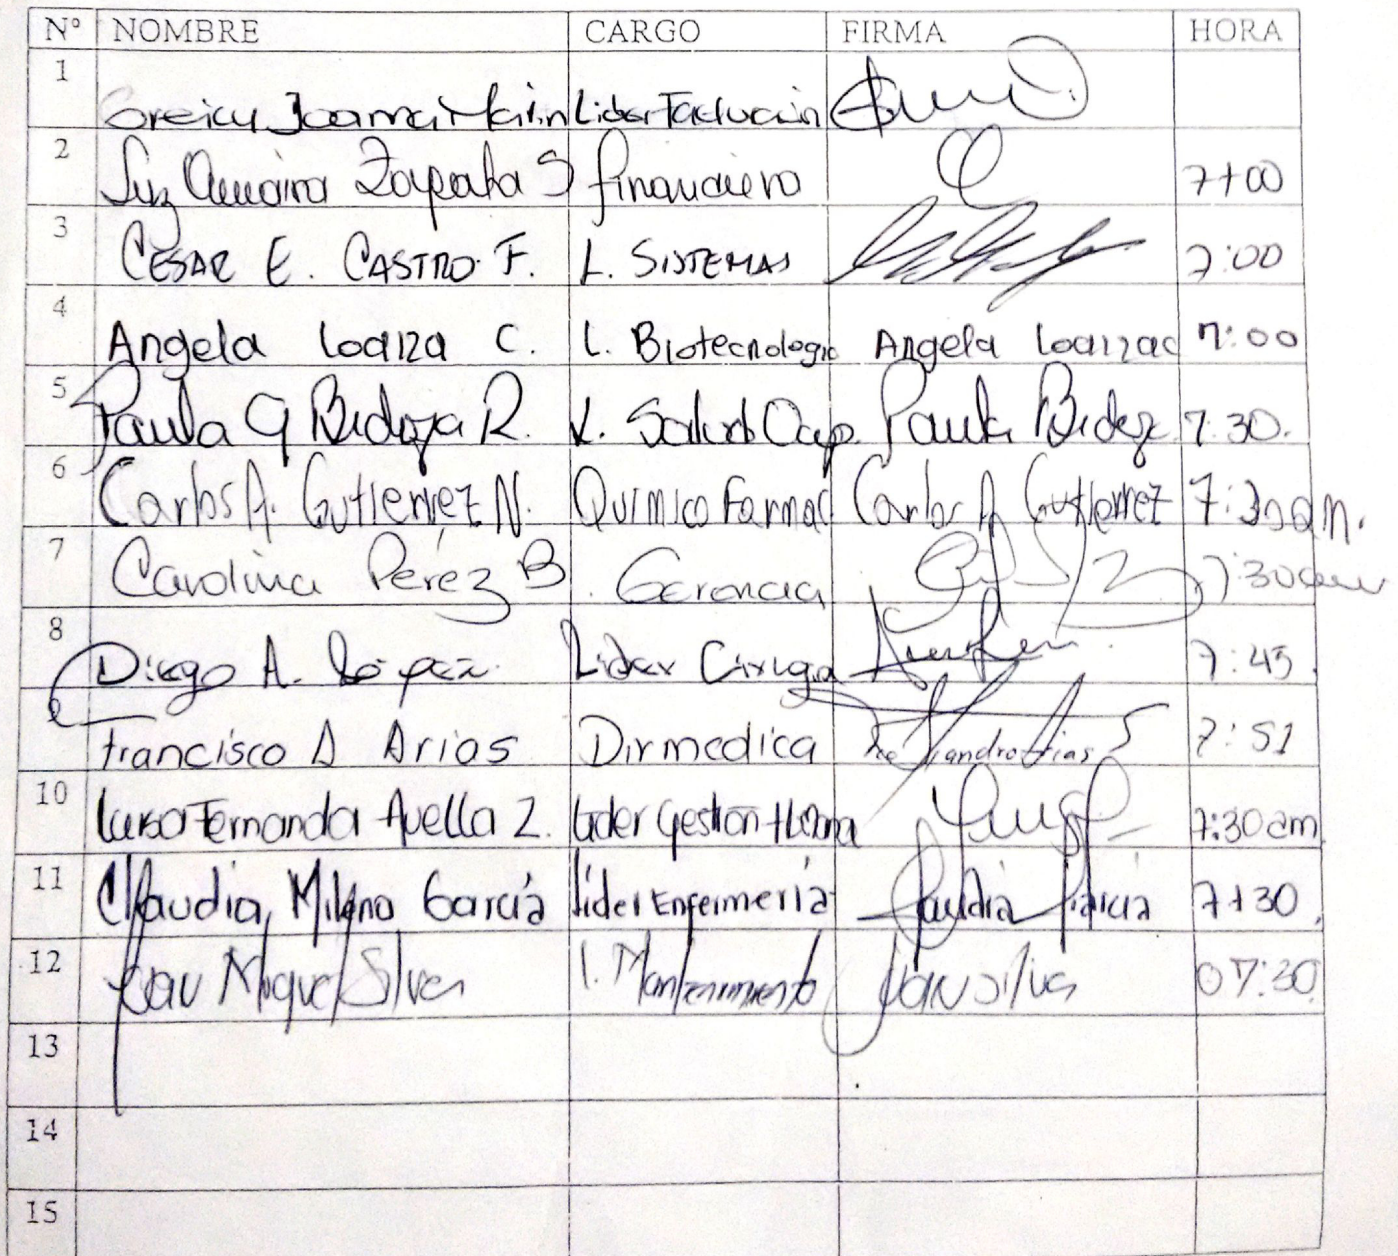 Nº NOMBRE CARGO FIRMA HORA
1 Greicy Joana Marin Lider Facturación
2 Luz Amaira Zapata S financiero 7+00
3 CESAR E. CASTRO F. L. SISTEMAS 7:00
4 Angela loaiza C. L. Biotecnologia Angela loaizac 7:00
5 Paula A R. L. Salud Ocup. Paula 7:30.
6 Carlos A. Gutierrez N. Químico Farmac Carlos A Gutierrez 7:30am.
7 Carolina Pérez B. Gerencia 7:30am
8 Diego A. López. Lider Cirugia 7:45
Francisco A Arias Dirmedica 7:51
10 Luisa Fernanda Avella Z. Lider Gestión Humana 7:30am
11 Claudia, Milena García Líder Enfermería Claudia García 7+30
12 Jean Miguel Silva l. Mantenimiento Jean silva 07:30
13
14
15